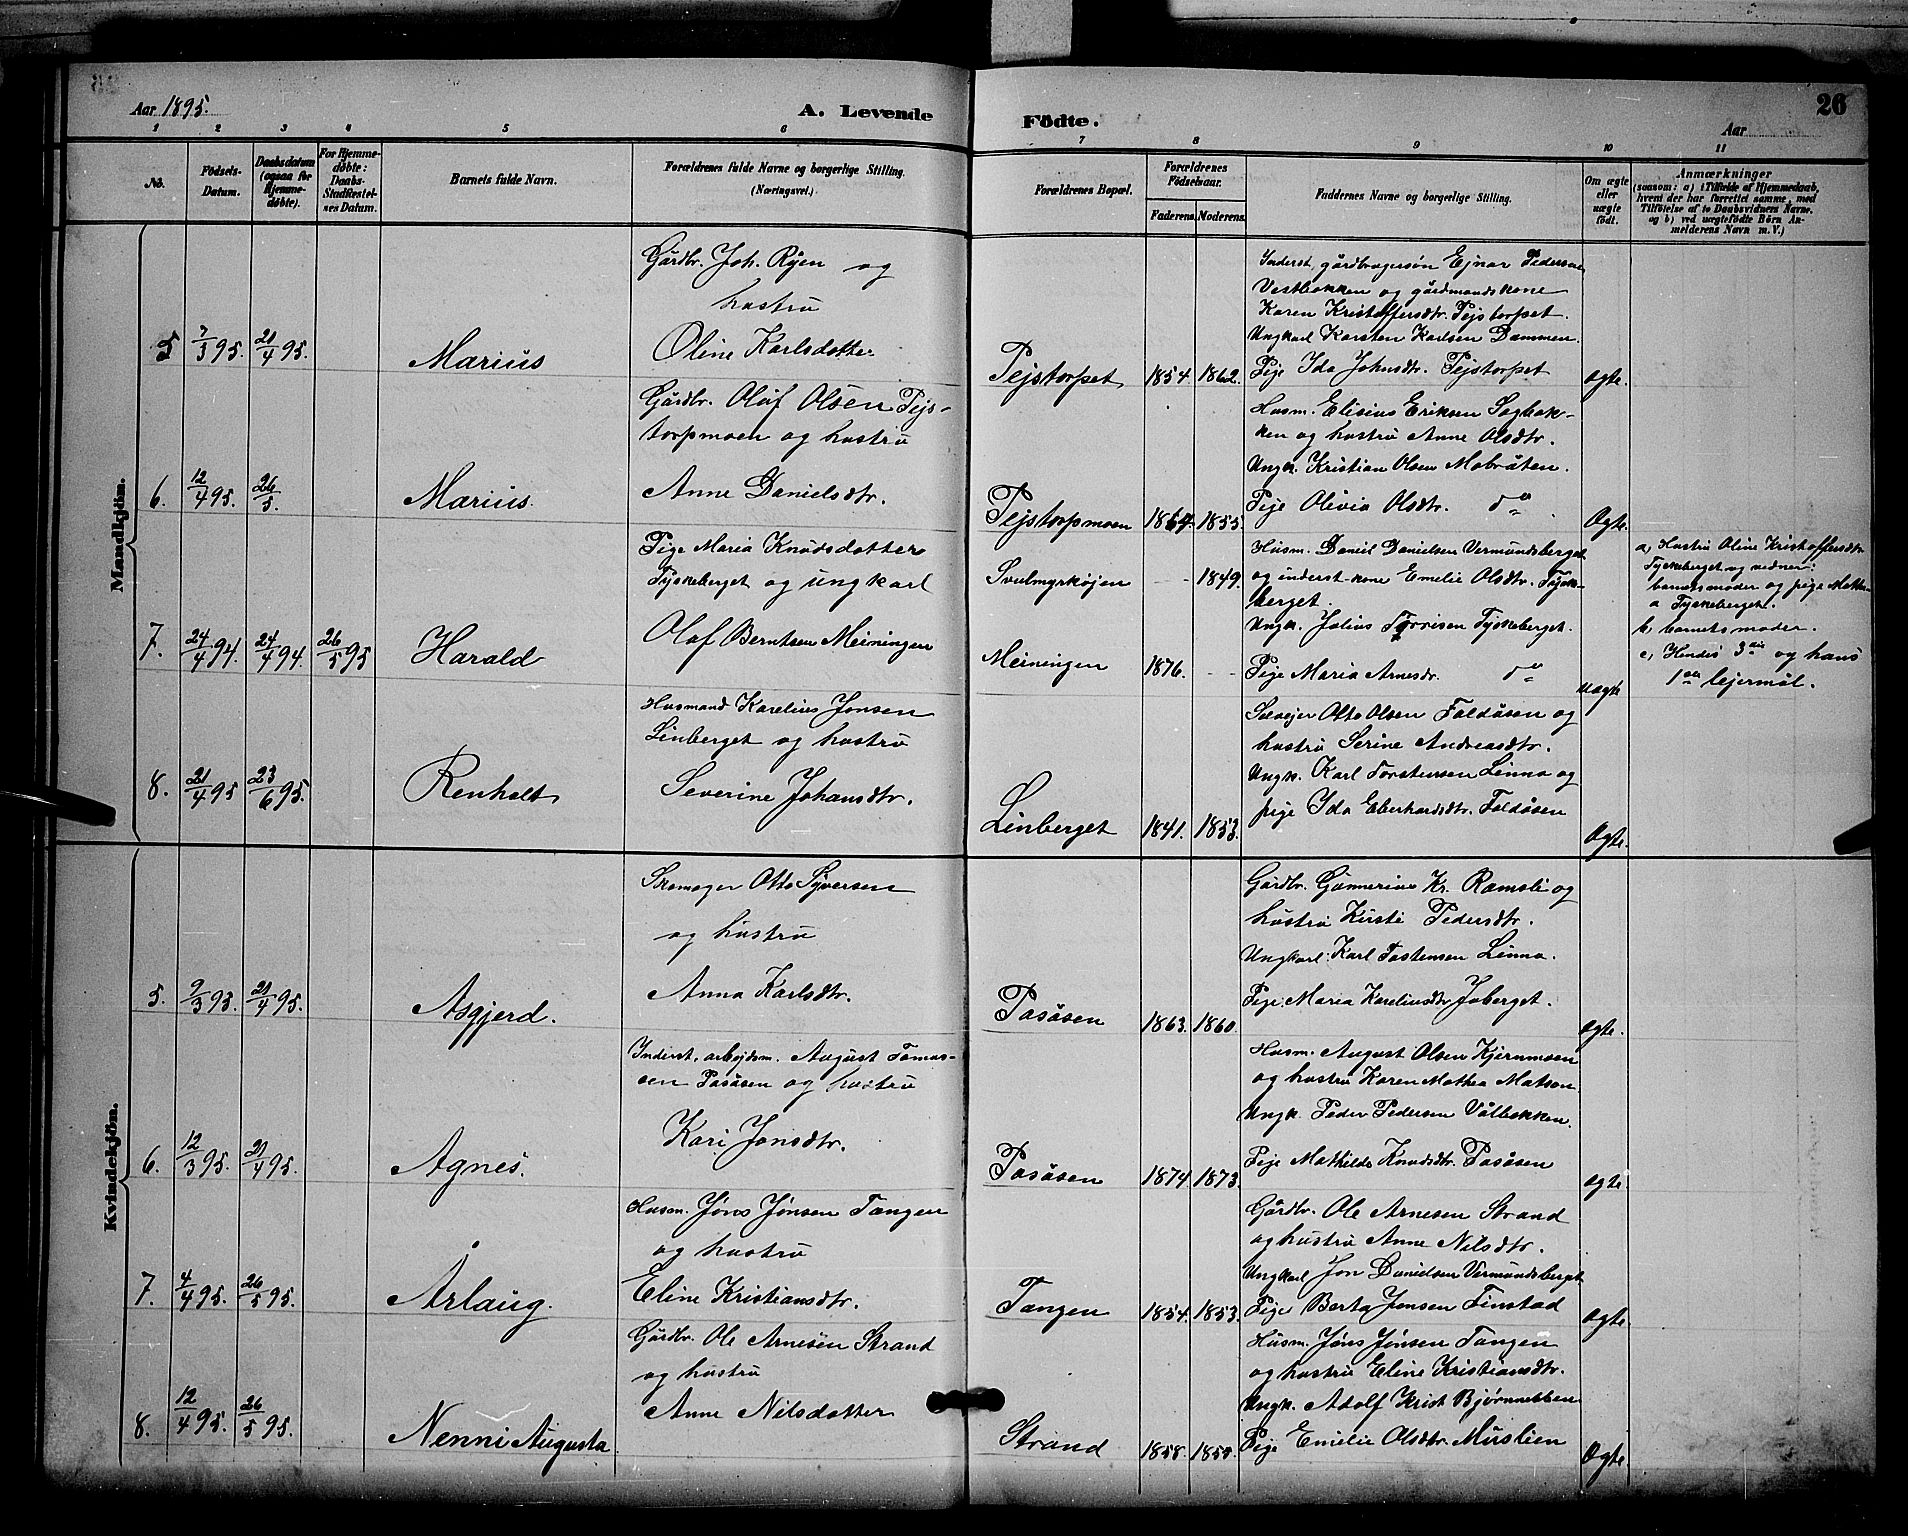 Aar 1895.
A. Levende
Födte.
26
Aar
1 2 3 4 5 6
7 8 9 10 11
No.
Födsels-
Datum.
Daabsdatum
(ogsaa for
Hjemme-
døbte).
For Hjemme-
døbte:
Daabs-
Stadfæstel-
ses Datum.
Barnets fulde Navn.
Forældrenes fulde Navne og borgerlige Stilling.
(Næringsvei.)
Forældrenes Bopæl.
Forældrenes
Fødselsaar.
Faderens. Moderens.
Faddernes Navne og borgerlige Stilling.
Om ægte
eller
uægte
født.
Anmærkninger
(saasom: a) i Tilfælde af Hjemmedaab,
hvem der har forrettet samme, med
Tilføielse af to Daabsvidners Navne,
og b) ved uægtefødte Børn An-
melderens Navn m. V.)
Mandkjön.
5 7/3 95. 21/4 95. Marius
Gårdbr. Joh. Ryen og
hustru
Oline Karlsdotter
Pejstorpet 1854. 1862.
Inderst, gårdbrugersøn Ejnar Pedersen
Vestbakken og gårdmandskone
Karen Kristoffersdtr. Pejstorpet.
Ungkarl Karsten Karlsen Dammen.
Pige Ida Johnsdtr. Pejstorpet
Ægte.
6. 12/4 95. 26/5. Marius.
Gårdbr. Olaf Olsen Pejs-
torpmoen og hustru
Anne Danielsdtr.
Pejstorpmoen 1864. 1855.
Husm. Elisius Eriksen Sagbak-
ken og hustru Anne Olsdtr.
Ungk. Kristian Olsen Mobråten.
Pige Olivia Olsdtr. do
Ægte.
7. 24/4 94. 24/4 94. 26/5 95 Harald
Pige Maria Knudsdotter
Tyskeberget og ungkarl
Olaf Berntsen Meiningen
Svulmyrkøjen - 1849.
Meiningen 1876. -
Husm. Daniel Danielsen Vermundsberget
og inderst-kone Emelie Olsdtr. Tysk-
berget.
Ungk. Julius Torrisen Tyskeberget.
Pige Maria Arnesdr. do
uægte
a, Hustru Oline Kristoffersdtr
Tyskeberget og vidner:
barnets moder og pige Mathe-
a Tyskeberget.
b, barnets moder.
c, Hendes 3die og hans
1ste lejermål.
8. 21/4 95 23/6 95. Renholt
Husmand Karelius Jonsen
Linberget og hustru
Severine Johansdtr.
Linberget 1841. 1853.
Selvejer Otto Olsen Faldåsen og
hustru Serine Andreasdtr.
Ungk. Karl Torstensen Linna og
pige Ida Eberhardsdtr. Faldåsen
Ægte.
Kvindekjön.
5. 9/3 95. 21/4 95. Asgjerd.
Skomager Otto Syversen
og hustru
Anna Karlsdtr.
Pasåsen 1863. 1860.
Gårdbr. Gunnerius Kr. Ramsli og
hustru Kirsti Pedersdtr.
Ungkarl. Karl Tostensen Linna.
Pige Maria Kareliusdtr Joberget.
Ægte.
6. 12/3 95. 21/4 95. Agnes.
Inderst, arbejdsm. August Tomas-
sen Pasåsen og hustru
Kari Jonsdtr.
Pasåsen 1874. 1873.
Husm. August Olsen Kjernmoen
og hustru Karen Mathea Matson
Ungk. Peder Pedersen Vålbakken.
Pige Mathilde Knudsdtr. Pasåsen
Ægte.
7. 4/4 95. 26/5 95. Årlaug.
Husm. Jøns Jønsen Tangen
og hustru
Eline Kristiansdtr.
Tangen 1854. 1853.
Gårdbr. Ole Arnesen Strand
og hustru Anne Nilsdtr.
Ungkarl Jon Danielsen Vermundsberget
Pige Berta Jonsen Finstad
Ægte.
8. 12/4 95. 26/5 95. Nenni Augusta
Gårdbr. Ole Arnesen Strand
og hustru
Anne Nilsdotter
Strand 1858.
Husm. Jøns Jønsen Tangen
og hustru Eline Kristiansdtr.
Ungk. Adolf Krist Bjørnnebben
Pige Emilie Olsdtr. Muslien
Ægte.